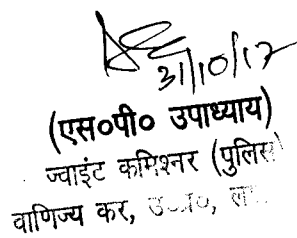 31/10/17
(एस०पी० उपाध्याय)
ज्वाइंट कमिश्नर (पुलिस
वाणिज्य कर,